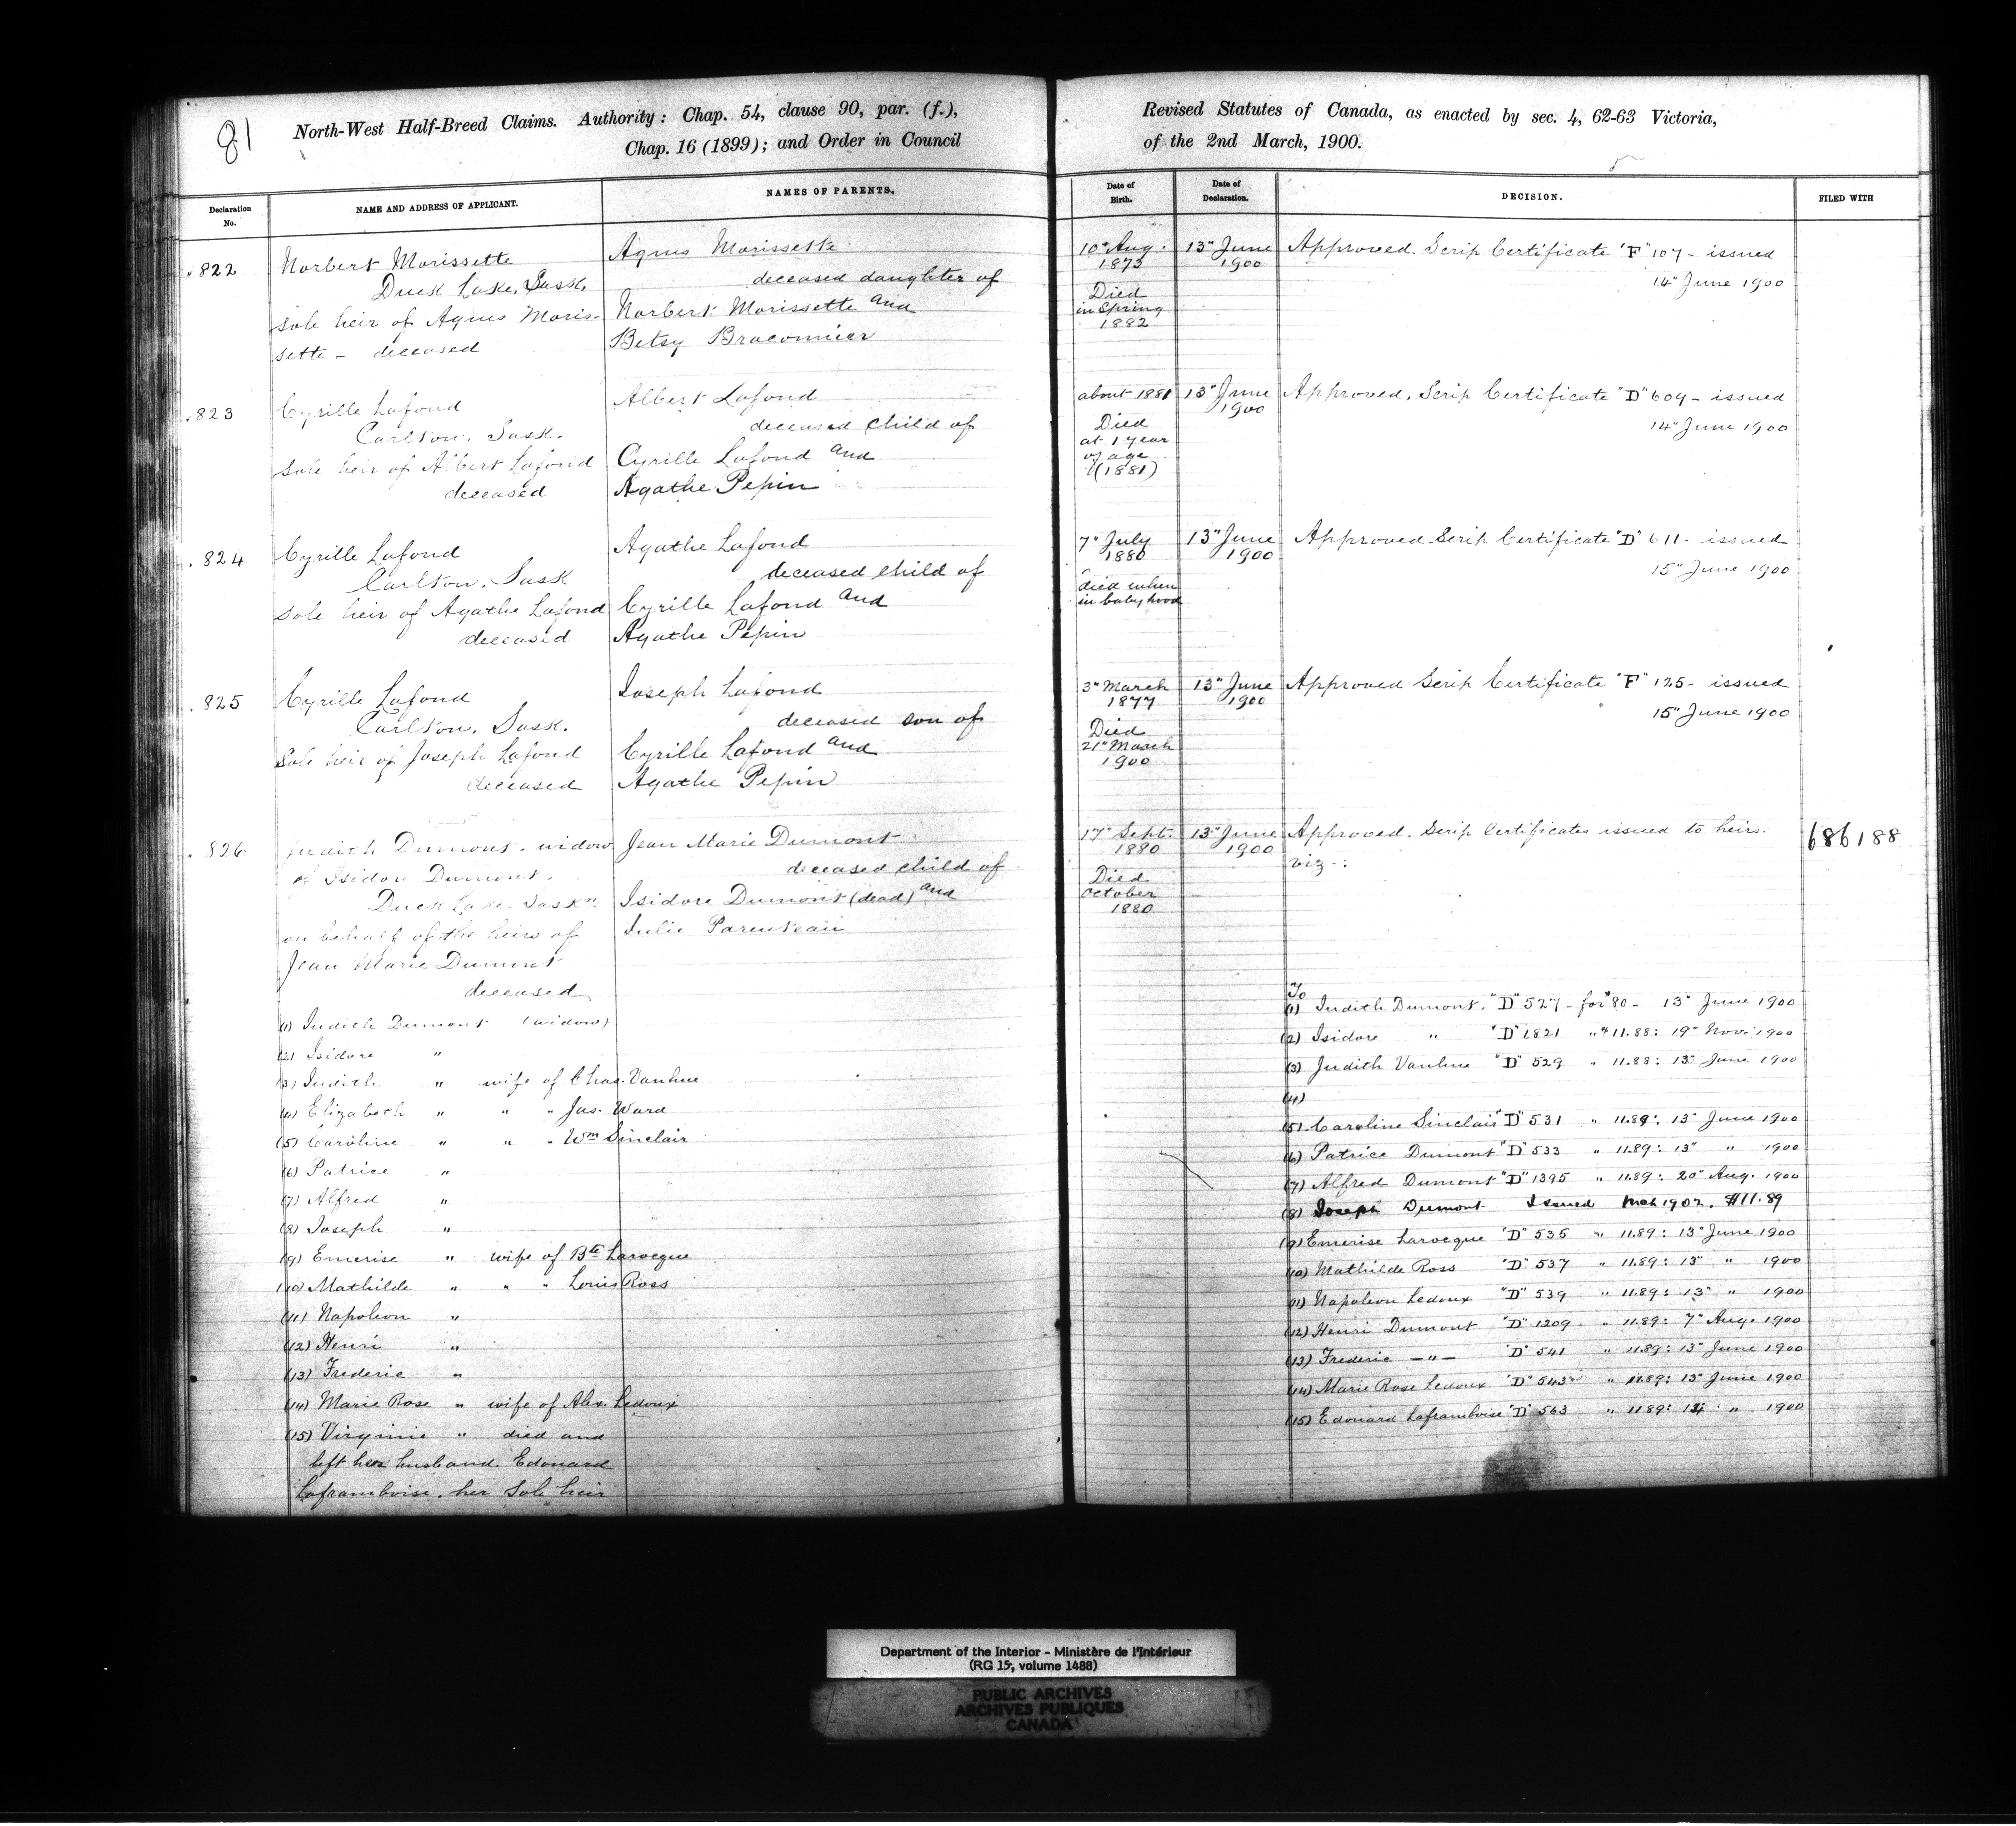 81
North-West Half-Breed Claims. Authority: Chap. 54, clause 90, par. (f.),
Chap. 16 (1899); and Order in Council
Revised Statutes of Canada, as enacted by sec. 4, 62-63 Victoria,
of the 2nd March, 1900.
Declaration No.
NAME AND ADDRESS OF APPLICANT.
NAMES OF PARENTS.
Date of Birth.
Date of Declaration.
DECISION.
FILED WITH
822
Norbert Morissette
Duck Lake, Sask.
sole heir of Agnes Moris-
sette - deceased
Agnes Morissette
deceased daughter of
Norbert Morissette and
Betsy Braconnier
10" Aug.
1873
Died
in Spring
1882
13" June
1900
Approved. Scrip Certificate "F" 107 - issued
14" June 1900
823
Cyrille Lafond
Carlton, Sask.
sole heir of Albert Lafond
deceased
Albert Lafond
deceased child of
Cyrille Lafond and
Agathe Pepin
about 1881
Died
at 1 year
of age
(1881)
13" June
1900
Approved, Scrip Certificate "D" 609 - issued
14" June 1900
824
Cyrille Lafond
Carlton, Sask
sole heir of Agathe Lafond
deceased
Agathe Lafond
deceased child of
Cyrille Lafond and
Agathe Pepin
7" July
1880
died when
in babyhood
13" June
1900
Approved Scrip Certificate "D" 611 - issued
15" June 1900
825
Cyrille Lafond
Carlton, Sask.
Sole heir of Joseph Lafond
deceased
Joseph Lafond
deceased son of
Cyrille Lafond and
Agathe Pepin
3" March
1877
Died
21" March
1900
13" June
1900
Approved Scrip Certificate "F" 125 - issued
15" June 1900
826
Judith Dumont. widow
of Isidore Dumont.
Duck Lake, Saskn
on behalf of the heirs of
Jean Marie Dumont
deceased
Jean Marie Dumont
deceased child of
Isidore Dumont (dead) and
Julie Parenteau
17" Sept.
1880
Died
October
1880
13" June
1900
Approved. Scrip Certificates issued to heirs.
viz - :
686188
(1) Judith Dumont (widow)
(2) Isidore "
(3) Judith " wife of Chas. Vanhue
(4) Elizabeth " " " Jas. Ward
(5) Caroline " " " Wm Sinclair
(6) Patrice "
(7) Alfred "
(8) Joseph "
(9) Emerise " wife of Bte Larocque
(10) Mathilde " " " Louis Ross
(11) Napoleon "
(12) Henri "
(13) Frederic "
(14) Marie Rose " wife of Alex. Ledoux
(15) Virginie " died and
left her husband Edouard
Laframboise, her sole heir
To
(1) Judith Dumont. "D" 527 - for $80 - 13" June 1900
(2) Isidore " "D" 1821 " $11.88: 19" Nov. 1900
(3) Judith Vanhue "D" 529 " 11.88: 13" June 1900
(4)
(5) Caroline Sinclair "D" 531 " 11.89: 13" June 1900
(6) Patrice Dumont "D" 533 " 11.89: 13" " 1900
(7) Alfred Dumont "D" 1395 " 11.89: 20" Aug. 1900
(8) Joseph Dumont Issued Mch 1902. $11.89
(9) Emerise Larocque "D" 535 " 11.89: 13" June 1900
(10) Mathilde Ross "D" 537 " 11.89: 13" " 1900
(11) Napoleon Ledoux "D" 539 " 11.89: 13" " 1900
(12) Henri Dumont "D" 1209 " 11.89: 7" Aug. 1900
(13) Frederic - " - "D" 541 " 11.89: 13" June 1900
(14) Marie Rose Ledoux "D" 543 " 11.89: 13" June 1900
(15) Edouard Laframboise "D" 563 " 11.89: 14 " 1900
Department of the Interior - Ministère de l'Intérieur
(RG 15, volume 1488)
PUBLIC ARCHIVES
ARCHIVES PUBLIQUES
CANADA